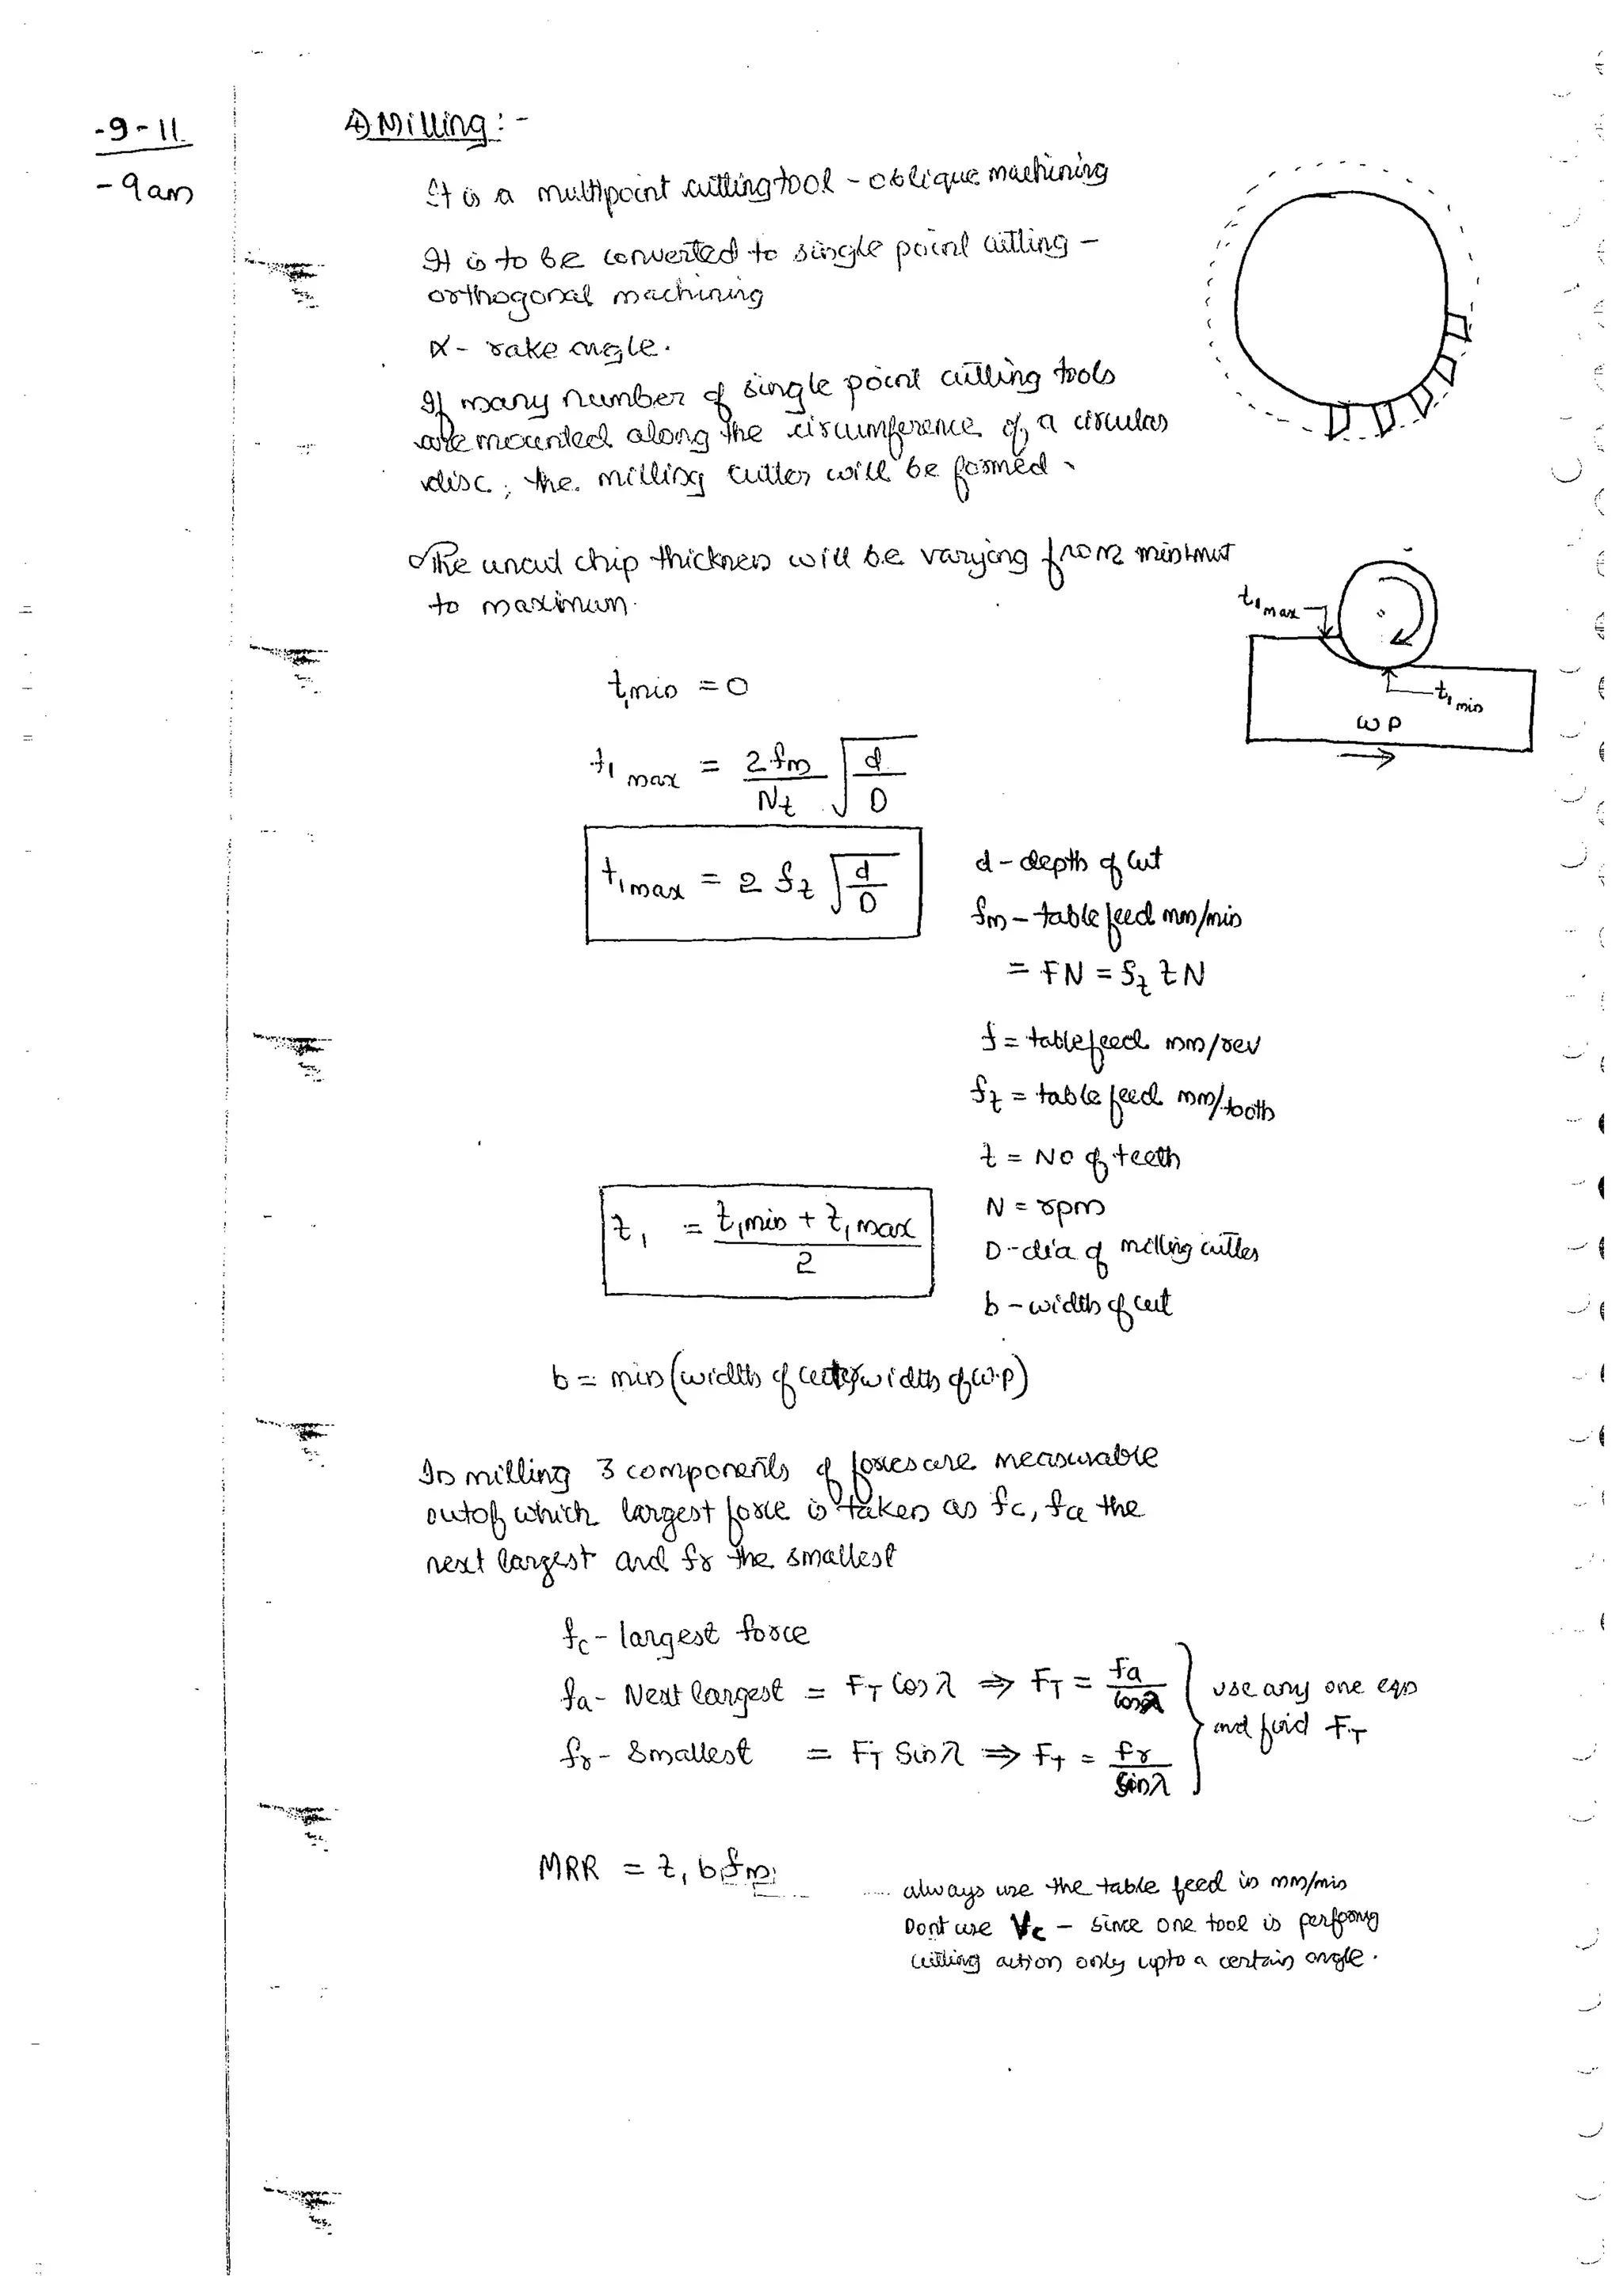 -9-11
-9am
4) Milling :-
It is a multipoint cutting tool - oblique machining
It is to be converted to single point cutting -
orthogonal machining
α - rake angle.
If many number of single point cutting tools
are mounted along the circumference of a circular
disc, the milling cutter will be formed.
The uncut chip thickness will be varying from minimum
to maximum.
t1 max
t1 min
WP
t1 min = 0
t1 max = 2fm/Nz √(d/D)
t1 max = 2 fz √(d/D)
d - depth of cut
fm - table feed mm/min
= FN = fz z N
f = table feed mm/rev
fz = table feed mm/tooth
z = No of teeth
N = rpm
D - dia of milling cutter
b - width of cut
t1 = (t1 min + t1 max)/2
b = min (width of cutter, width of w.p)
In milling 3 components of forces are measurable
out of which largest force is taken as fc, fa the
next largest and fr the smallest
fc - largest force
fa - Next largest = FT Cos λ ⇒ FT = fa/Cosλ
fr - Smallest = FT Sin λ ⇒ FT = fr/Sinλ
use any one eqn
and find FT
MRR = t1 b fm
always use the table feed in mm/min
Dont use Vc - since one tool is perfoming
cutting action only upto a certain angle.